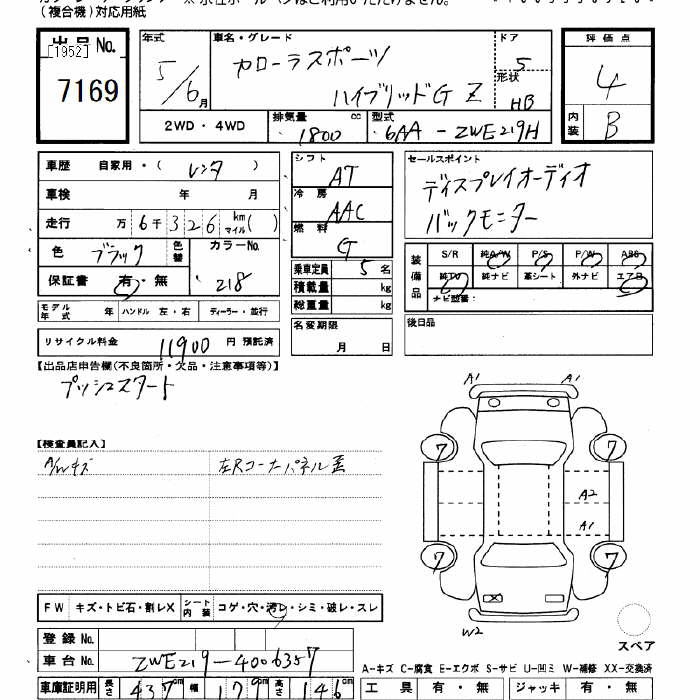 (複合機)対応用紙
出品 No.
[1952]
7169
年式
5/6月
車名・グレード
カローラスポーツ
ハイブリッドG Z
ドア
5
形状
HB
評価点
4
内装
B
2WD・4WD
排気量
1800 cc
型式
6AA-ZWE219H
車歴 自家用・( レンタ )
車検 年 月
走行 万 6千 3 2 6 km マイル( )
色 ブラック 色替 カラーNo. 218
保証書 有・無
モデル年式 年 ハンドル 左・右 ディーラー・並行
リサイクル料金 11900 円 預託済
シフト
AT
冷房
AAC
燃料
G
乗車定員 5 名
積載量 kg
総重量 kg
名変期限
月 日
セールスポイント
ディスプレイオーディオ
バックモニター
装備品
S/R 純A/W P/S P/W ABS
純TV 純ナビ 革シート 外ナビ エアB
ナビ型番:
後日品
【出品店申告欄(不良箇所・欠品・注意事項等)】
プッシュスタート
【検査員記入】
A/Wキズ
左Rコーナーパネル歪
A1 A1
7 7
A2
A1
7 7
X
W2
スペア
FW キズ・トビ石・割レX シート内装 コゲ・穴・汚レ・シミ・破レ・スレ
登録 No.
車台 No. ZWE219-4006357
車庫証明用 長さ 437cm 幅 179cm 高さ 146cm
A-キズ C-腐食 E-エクボ S-サビ U-凹ミ W-補修 XX-交換済
工具 有・無 ジャッキ 有・無